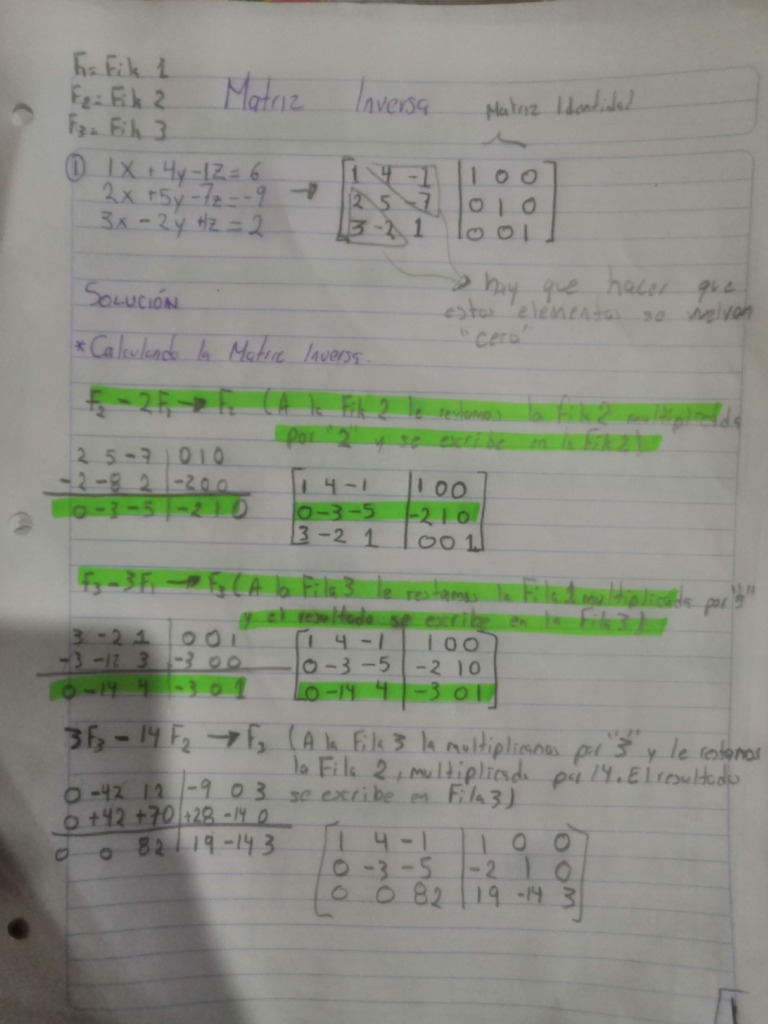 F1= Fila 1
F2= Fila 2
F3= Fila 3
Matriz Inversa
Matriz Identidad
① 1x + 4y - 1z = 6
2x + 5y - 7z = -9
3x - 2y + z = 2
→
[1 4 -1 | 1 0 0]
[2 5 -7 | 0 1 0]
[3 -2 1 | 0 0 1]
hay que hacer que
estos elementos se vuelvan
"cero"
SOLUCIÓN
* Calculando la Matriz Inversa.
F2 - 2F1 → F2 (A la Fila 2 le restamos la Fila 2 multiplicada
por "2" y se escribe en la Fila 2).
2 5 -7 | 0 1 0
-2 -8 2 | -2 0 0
0 -3 -5 | -2 1 0
[1 4 -1 | 1 0 0]
[0 -3 -5 | -2 1 0]
[3 -2 1 | 0 0 1]
F3 - 3F1 → F3 (A la Fila 3 le restamos la Fila 1 multiplicada por "3"
y el resultado se escribe en la Fila 3).
3 -2 1 | 0 0 1
-3 -12 3 | -3 0 0
0 -14 4 | -3 0 1
[1 4 -1 | 1 0 0]
[0 -3 -5 | -2 1 0]
[0 -14 4 | -3 0 1]
3F3 - 14F2 → F3 (A la Fila 3 la multiplicamos por "3" y le restamos
la Fila 2, multiplicada por 14. El resultado
se escribe en Fila 3)
0 -42 12 | -9 0 3
0 +42 +70 | +28 -14 0
0 0 82 | 19 -14 3
[1 4 -1 | 1 0 0]
[0 -3 -5 | -2 1 0]
[0 0 82 | 19 -14 3]
1